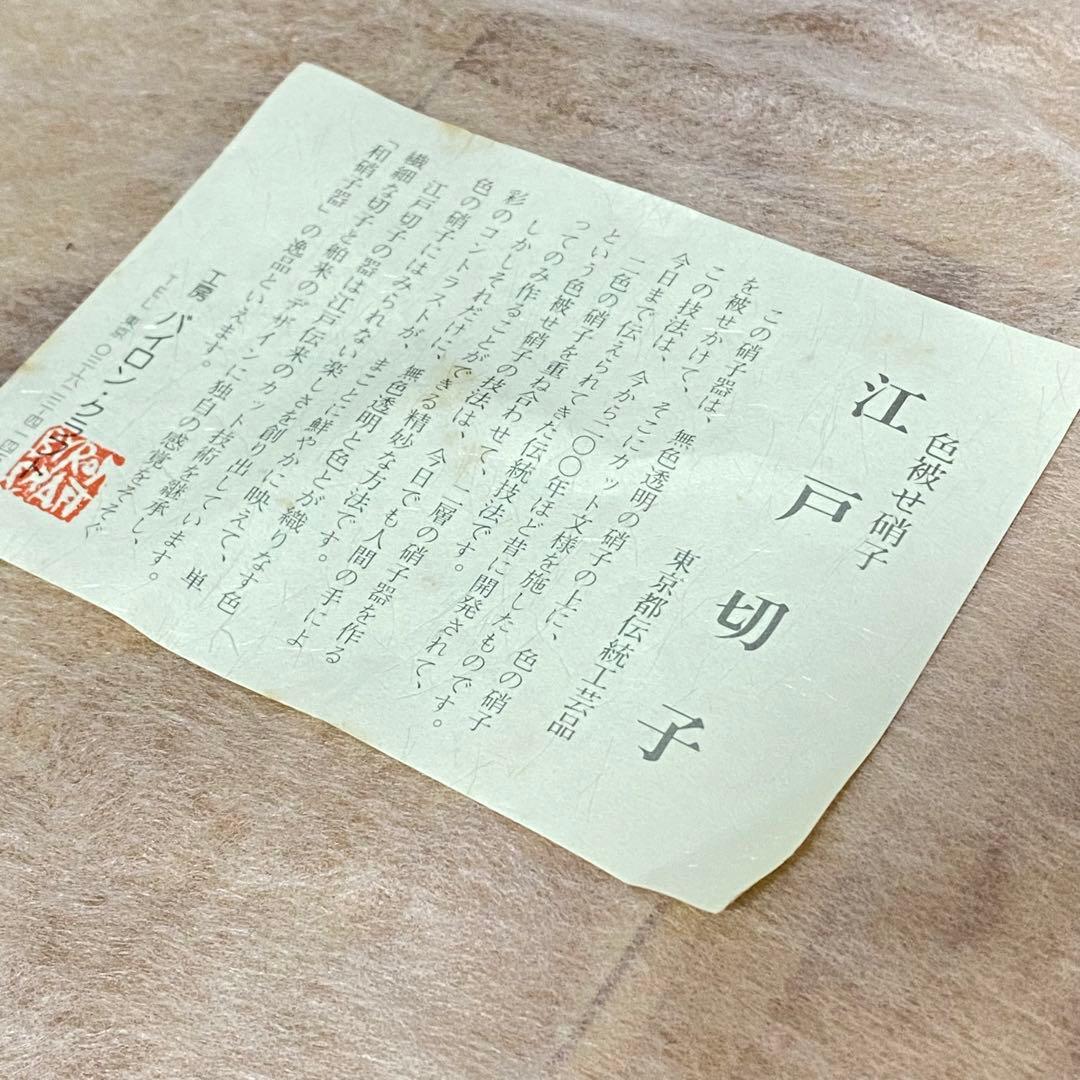 色被せ硝子
江戸切子
東京都伝統工芸品
この硝子器は、無色透明の硝子の上に、色の硝子
を被せかけて、そこにカット文様を施したものです。
この技法は、今から一〇〇年ほど昔に開発されて、
今日まで伝えられてきた伝統技法です。
二色の硝子を重ね合わせて、二層の硝子器を作る
という色被せ硝子の技法は、今日でも人間の手によ
ってのみ作ることができる精妙な方法です。
しかしそれだけに、無色透明と色とが織りなす色
彩のコントラストが、まことに鮮やかに映えて、単
色の硝子にはみられない楽しさを創り出しています。
江戸切子の器は江戸伝来のカット技術を継承し、
繊細な切子と舶来のデザインに独自の感覚をそそぐ
「和硝子器」の逸品といえます。
工房 バイロン・クラフト
TEL 東京